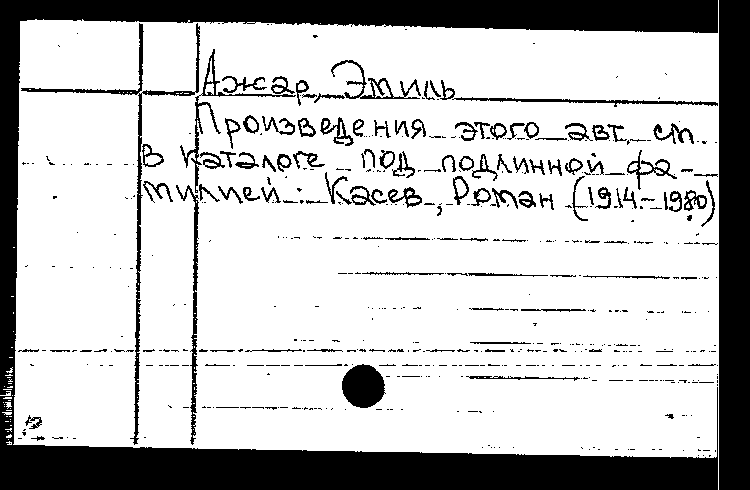 Ажар, Эмиль
Произведения этого авт. см.
в каталоге под подлинной фа-
милией: Касев, Роман (1914-1980)